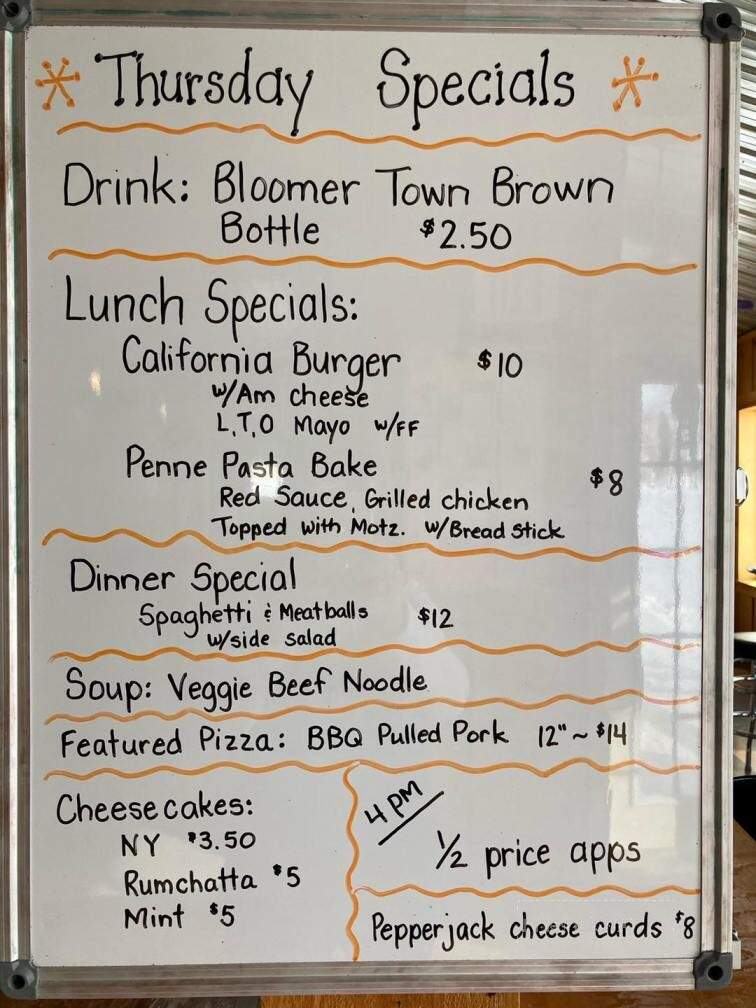 Thursday Specials
Drink: Bloomer Town Brown
Bottle $2.50
Lunch Specials:
California Burger $10
w/Am cheese
L,T,O Mayo w/FF
Penne Pasta Bake $8
Red Sauce, Grilled chicken
Topped with Motz. w/Bread stick
Dinner Special
Spaghetti & Meatballs $12
w/side salad
Soup: Veggie Beef Noodle
Featured Pizza: BBQ Pulled Pork 12" ~ $14
Cheesecakes:
NY $3.50
Rumchatta $5
Mint $5
4 PM
1/2 price apps
Pepperjack cheese curds $8